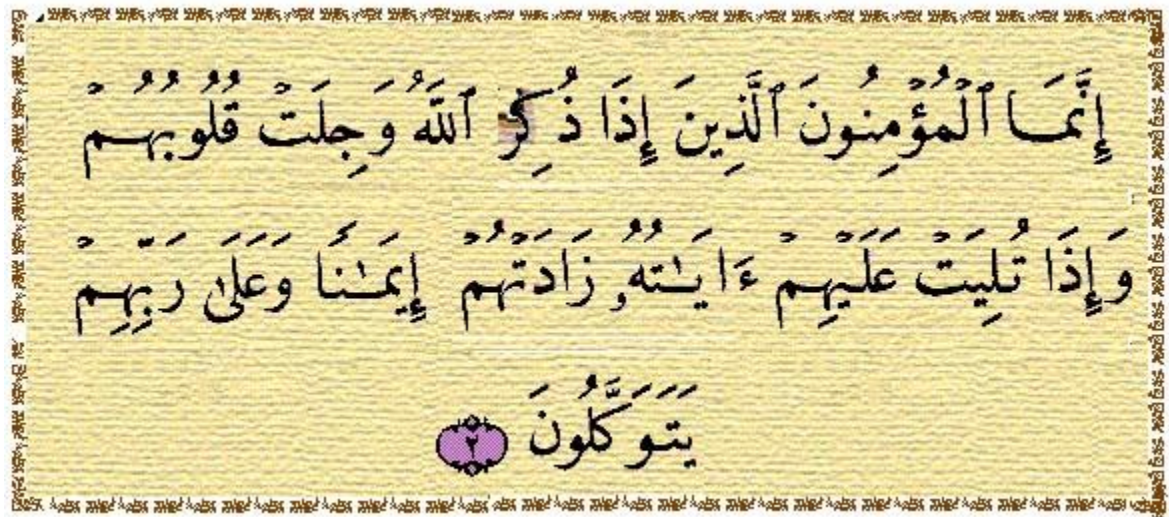 إِنَّمَا ٱلْمُؤْمِنُونَ ٱلَّذِينَ إِذَا ذُكِرَ ٱللَّهُ وَجِلَتْ قُلُوبُهُمْ
وَإِذَا تُلِيَتْ عَلَيْهِمْ ءَايَـٰتُهُۥ زَادَتْهُمْ إِيمَـٰنًا وَعَلَىٰ رَبِّهِمْ
يَتَوَكَّلُونَ ٢